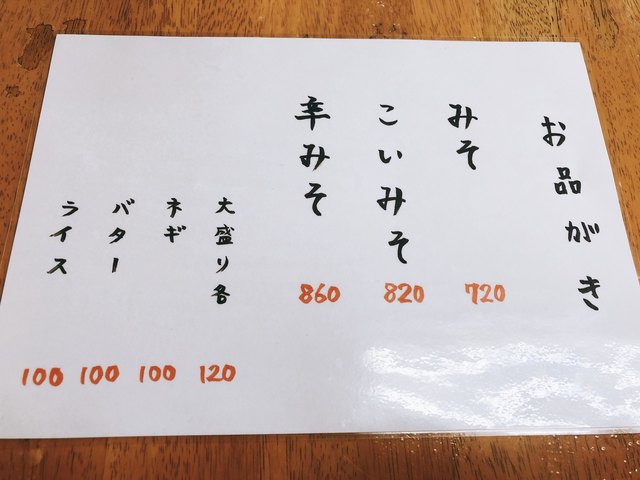 お品がき
みそ 720
こいみそ 820
辛みそ 860
大盛り各 120
ネギ 100
バター 100
ライス 100